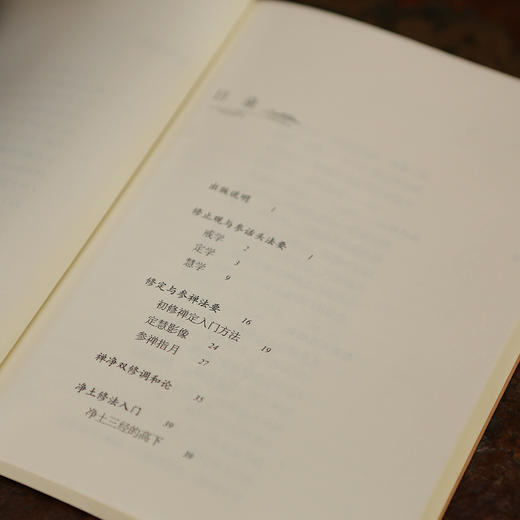 目录
出版说明 1
修止观与参话头法要 1
戒学 2
定学 3
慧学 9
修定与参禅法要 16
初修禅定入门方法 19
定慧影像 24
参禅指月 27
禅净双修调和论 35
净土修法入门 39
净土三经的高下 39